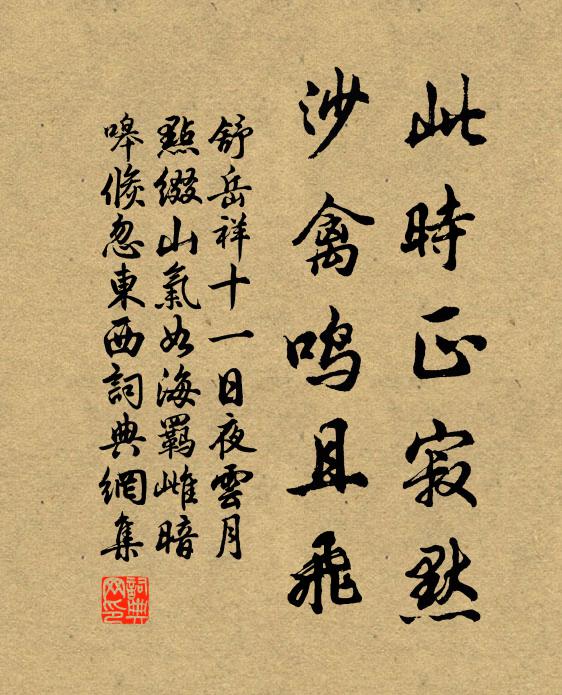 此時正寂默
沙禽鳴且飛
舒岳祥十一日夜雲月
點綴山氣如海羈雌暗
嗥倏忽東西詞典網集
詞典
网印